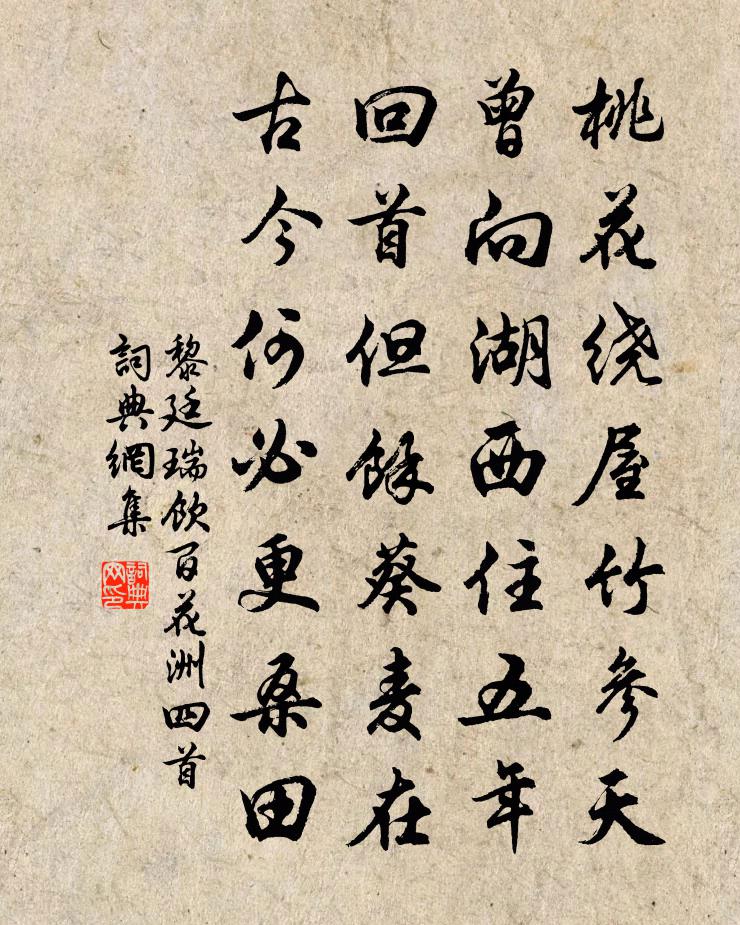 桃花绕屋竹参天
曾向湖西住五年
回首但餘葵麦在
古今何必更桑田
黎廷瑞飲百花洲四首
詞典網集
詞典
网印